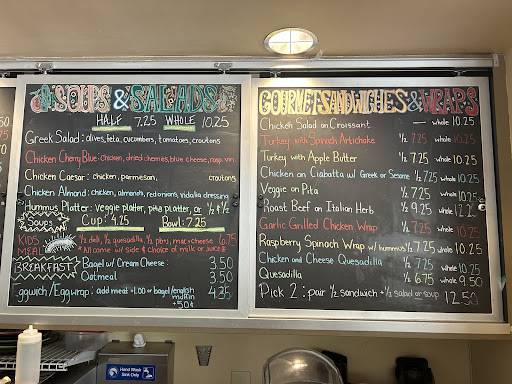 SOUPS & SALADS
HALF 7.25 WHOLE 10.25
Greek Salad: olives, feta, cucumbers, tomatoes, croutons
Chicken Cherry Blue: chicken, dried cherries, blue cheese, rasp. vin.
Chicken Caesar: chicken, parmesan, croutons
Chicken Almond: chicken, almonds, red onions, vidalia dressing
Hummus Platter: veggie platter, pita platter, or ½ & ½
Soups Cup: 4.25 Bowl: 7.25
KIDS MEAL ½ deli, ½ quesadilla, ½ pb+j, mac+cheese 6.75
* All come w/ side & choice of milk or juice
BREAKFAST Bagel w/ Cream Cheese: 3.50
Oatmeal 3.50
Eggwich/Eggwrap: add meat +1.00 or bagel/english 4.25
+50¢
GOURMET SANDWICHES & WRAPS
Chicken Salad on Croissant — whole 10.25
Turkey with Spinach Artichoke ½ 7.25 whole 10.25
Turkey with Apple Butter ½ 7.25 whole 10.25
Chicken on Ciabatta w/ Greek or Sesame ½ 7.25 whole 10.25
Veggie on Pita ½ 7.25 whole 10.25
Roast Beef on Italian Herb ½ 9.25 whole 12.25
Garlic Grilled Chicken Wrap ½ 7.25 whole 10.25
Raspberry Spinach Wrap w/ hummus ½ 7.25 whole 10.25
Chicken and Cheese Quesadilla ½ 7.25 whole 10.25
Quesadilla ½ 6.75 whole 9.50
Pick 2: pair ½ sandwich + ½ salad or soup 12.50
Hand Wash
Sink Only